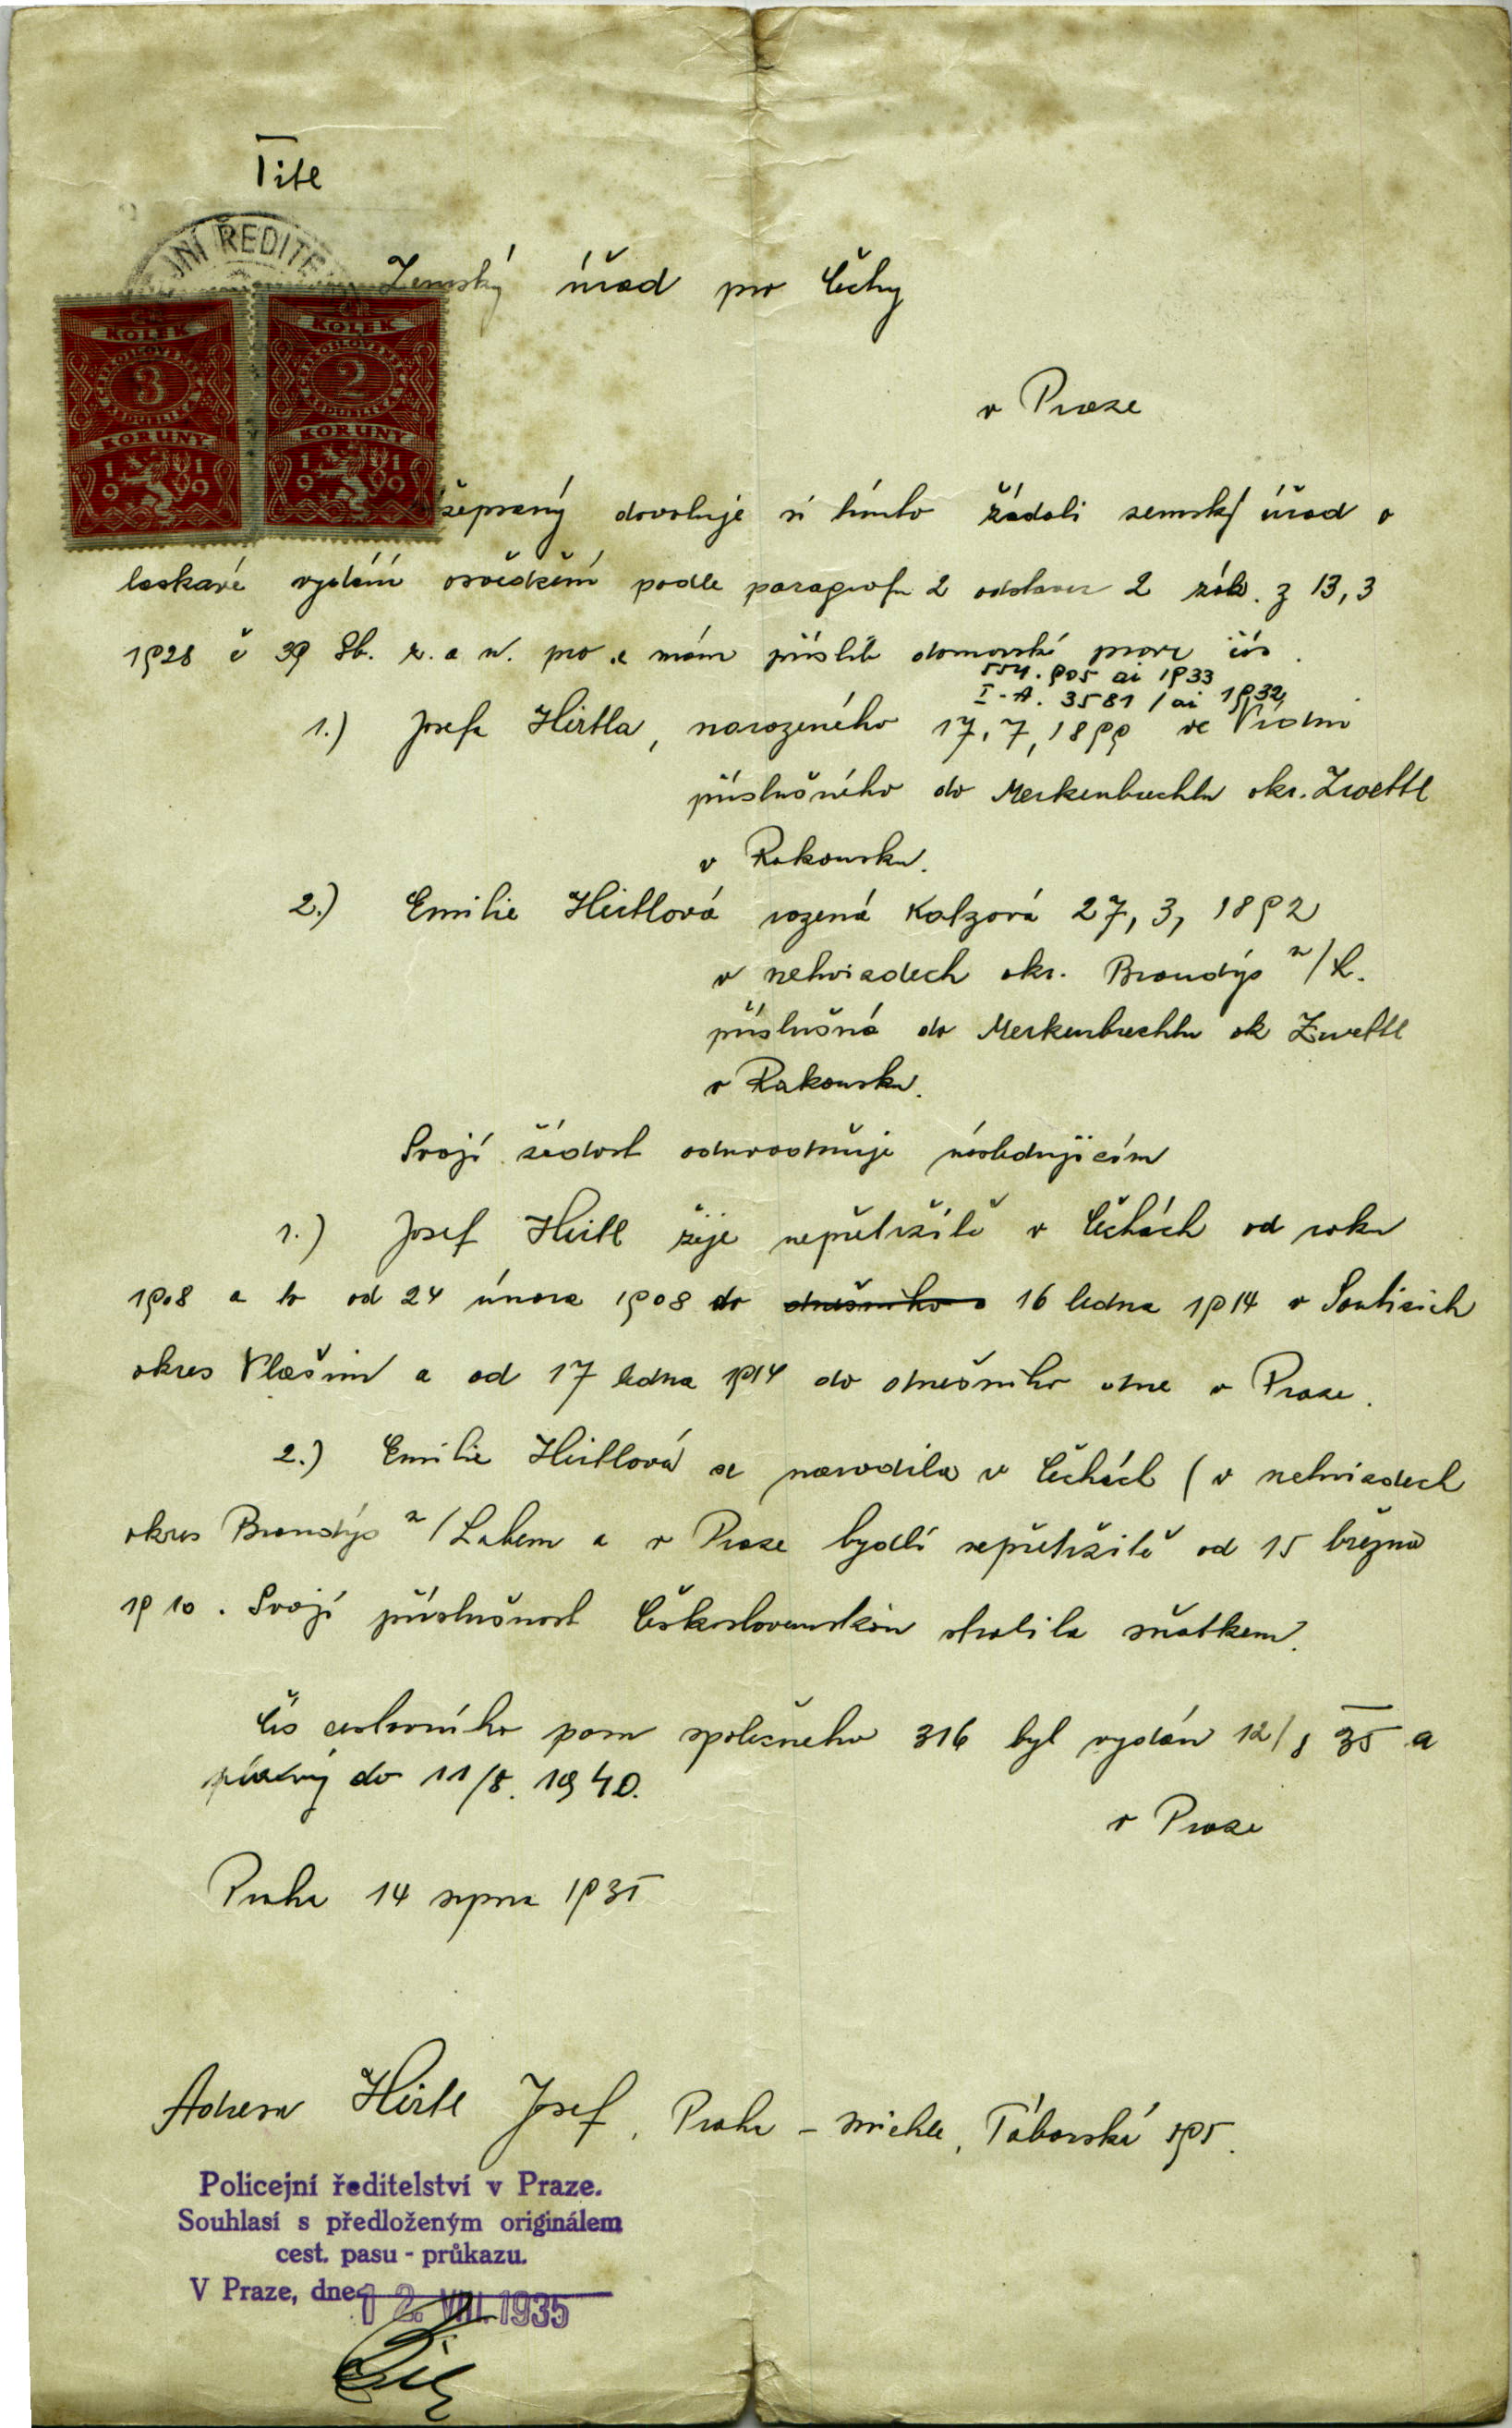 Titl
JNÍ ŘEDITE
Zemský úřad pro Čechy
KOLEK KOLEK
3 2
KORUNY KORUNY
1919 1919
v Praze
žepsaný dovoluje si tímto žádati zemský úřad o
laskavé vydání osvědčení podle paragrafu 2 odstavce 2 zák. z 13, 3
1928 č 39 Sb. z. a n. pro a mám příslib domovské práva čís.
554.905 ai 1933
I-A. 3581 / ai 1932
1.) Josefa Hirtla, narozeného 17, 7, 1899 ve Vídni
příslušného do Merkenbrechtu okr. Zwettl
v Rakousku.
2.) Emilie Hirtlová rozená Kalzová 27, 3, 1892
v nehvizdech okr. Brandýs n/L.
příslušná do Merkenbrechtu ok Zwettl
v Rakousku.
Svojí žádost oduvodňuje následujícím
1.) Josef Hirtl žije nepřetržitě v Čechách od roku
1908 a to od 24 února 1908 do dnešního 16 ledna 1914 v Souticích
okres Vlašim a od 17 ledna 1914 do dnešního dne v Praze.
2.) Emilie Hirtlová se narodila v Čechách ( v nehvizdech
okres Brandýs n/Labem a v Praze bydlí nepřetržitě od 15 března
1910. Svojí příslušnost Československou ztratila sňatkem.
Čís cestovního pasu společného 316 byl vydán 12/8 35 a
platný do 11/8. 1940.
v Praze
Praha 14 srpna 1935
Adresa Hirtl Josef, Praha - Michle, Táborská 595.
Policejní ředitelství v Praze.
Souhlasí s předloženým originálem
cest. pasu - průkazu.
V Praze, dne 12. VIII. 1935